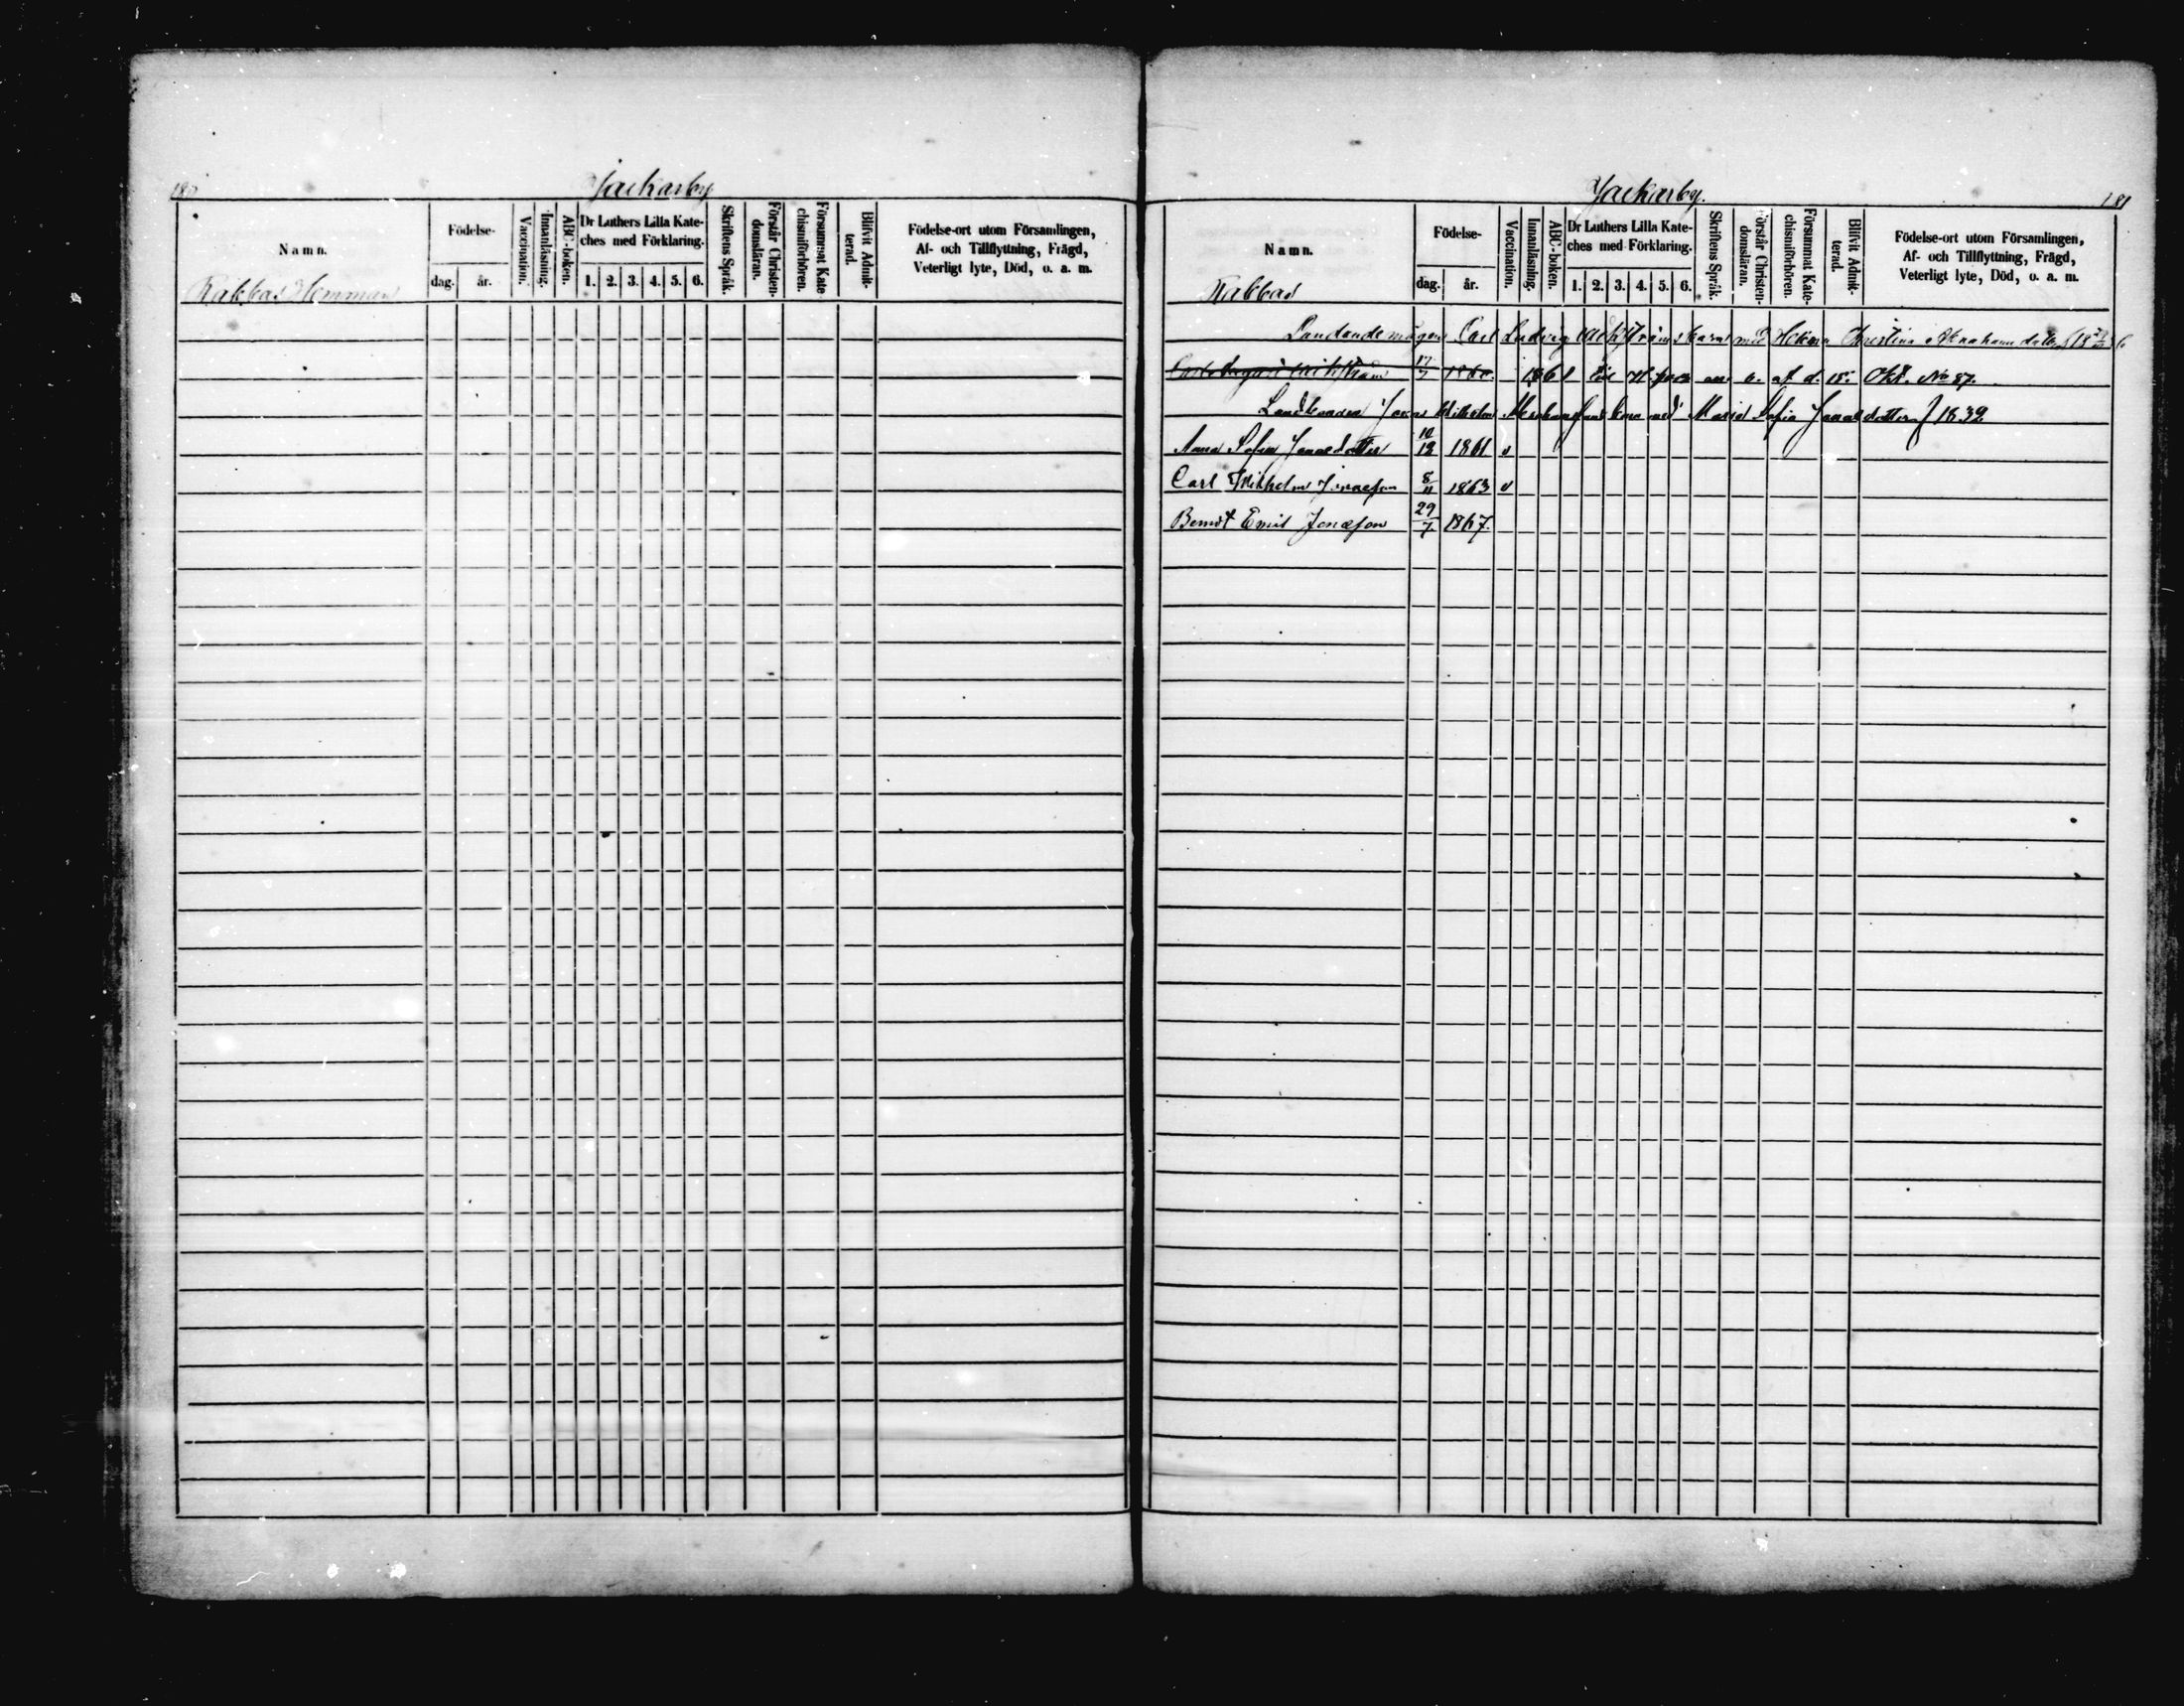 180
Jackarby
Namn.
Födelse-
dag.
år.
Vaccination.
Innanläsning.
ABC-boken.
Dr Luthers Lilla Kate-
ches med Förklaring.
1. 2. 3. 4. 5. 6.
Skriftens Språk.
Förstår Christen-
domsläran.
Försummat Kate
chismiförhören.
Blifvit Admit-
terad.
Födelse-ort utom Församlingen,
Af- och Tillflyttning, Frägd,
Veterligt lyte, Död, o. a. m.
Rabbas Hemman
Jackarby.
181
Namn.
Födelse-
dag.
år.
Vaccination.
Innanläsning.
ABC-boken.
Dr Luthers Lilla Kate-
ches med Förklaring.
1. 2. 3. 4. 5. 6.
Skriftens Språk.
Förstår Christen-
domsläran.
Försummat Kate-
chismiförhören.
Blifvit Admit-
terad.
Födelse-ort utom Församlingen,
Af- och Tillflyttning, Frägd,
Veterligt lyte, Död, o. a. m.
Rabbas
Carl Ludvig barn med Helena Christina
17/7 1860. 1861 af d. 15. Okt. No 87.
Landbonden Jonas Wilhelm barn med Maria Sofia Jonasdotter f 1839
Anna Sofia Jonasdotter 10/12 1861 v
Carl Wilhelm Jonasson 8/11 1863 v
Berndt Emil Jonasson 29/7 1867.